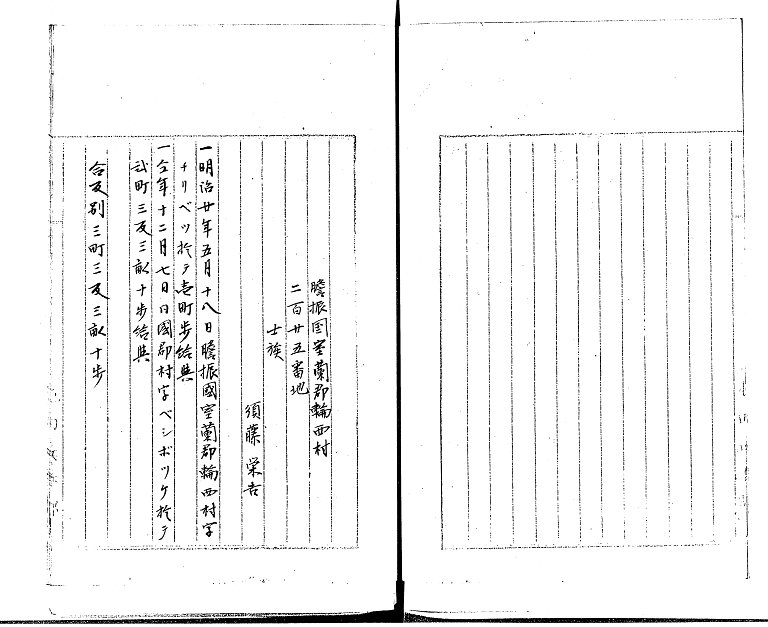 膽振国室蘭郡輪西村
二百廿五番地
士族
須藤栄吉
一明治廿年五月十八日膽振國室蘭郡輪西村字
チリベツ於テ壱町歩給與
一仝年十二月七日同國郡村字ベシボツケ於テ
弐町三反三畝十歩給與
合反別三町三反三畝十歩